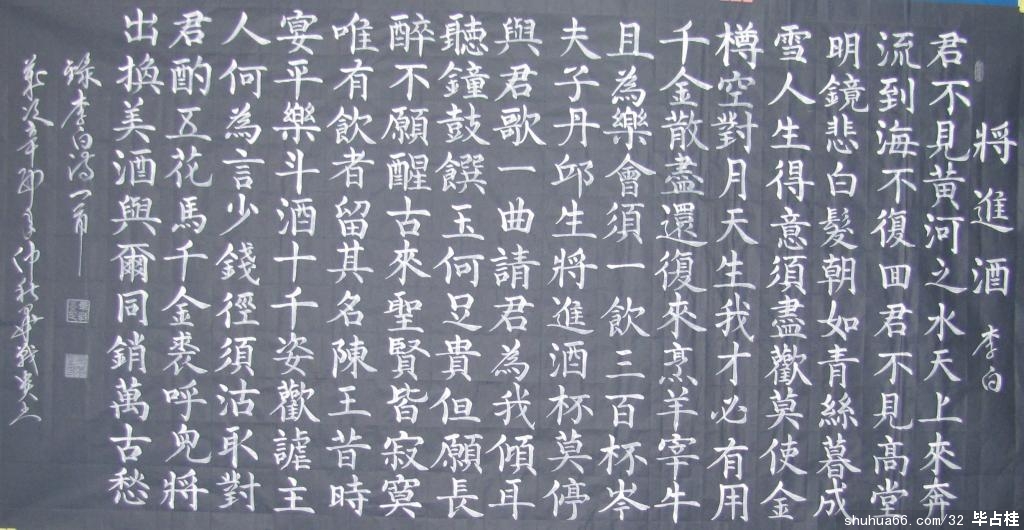 將進酒 李白
君不見黃河之水天上來奔
流到海不復囬君不見高堂
明鏡悲白髮朝如青絲暮成
雪人生得意須盡歡莫使金
樽空對月天生我才必有用
千金散盡還復來烹羊宰牛
且為樂會須一飲三百杯岑
夫子丹邱生將進酒杯莫停
與君歌一曲請君為我傾耳
聽鐘鼓饌玉何足貴但願長
醉不願醒古來聖賢皆寂寞
唯有飲者留其名陳王昔時
宴平樂斗酒十千姿歡謔主
人何為言少錢徑須沽取對
君酌五花馬千金裘呼兒將
出換美酒與爾同銷萬古愁
錄李白詩一首
歲次辛卯年仲秋
shuhua66.com/32 毕占桂